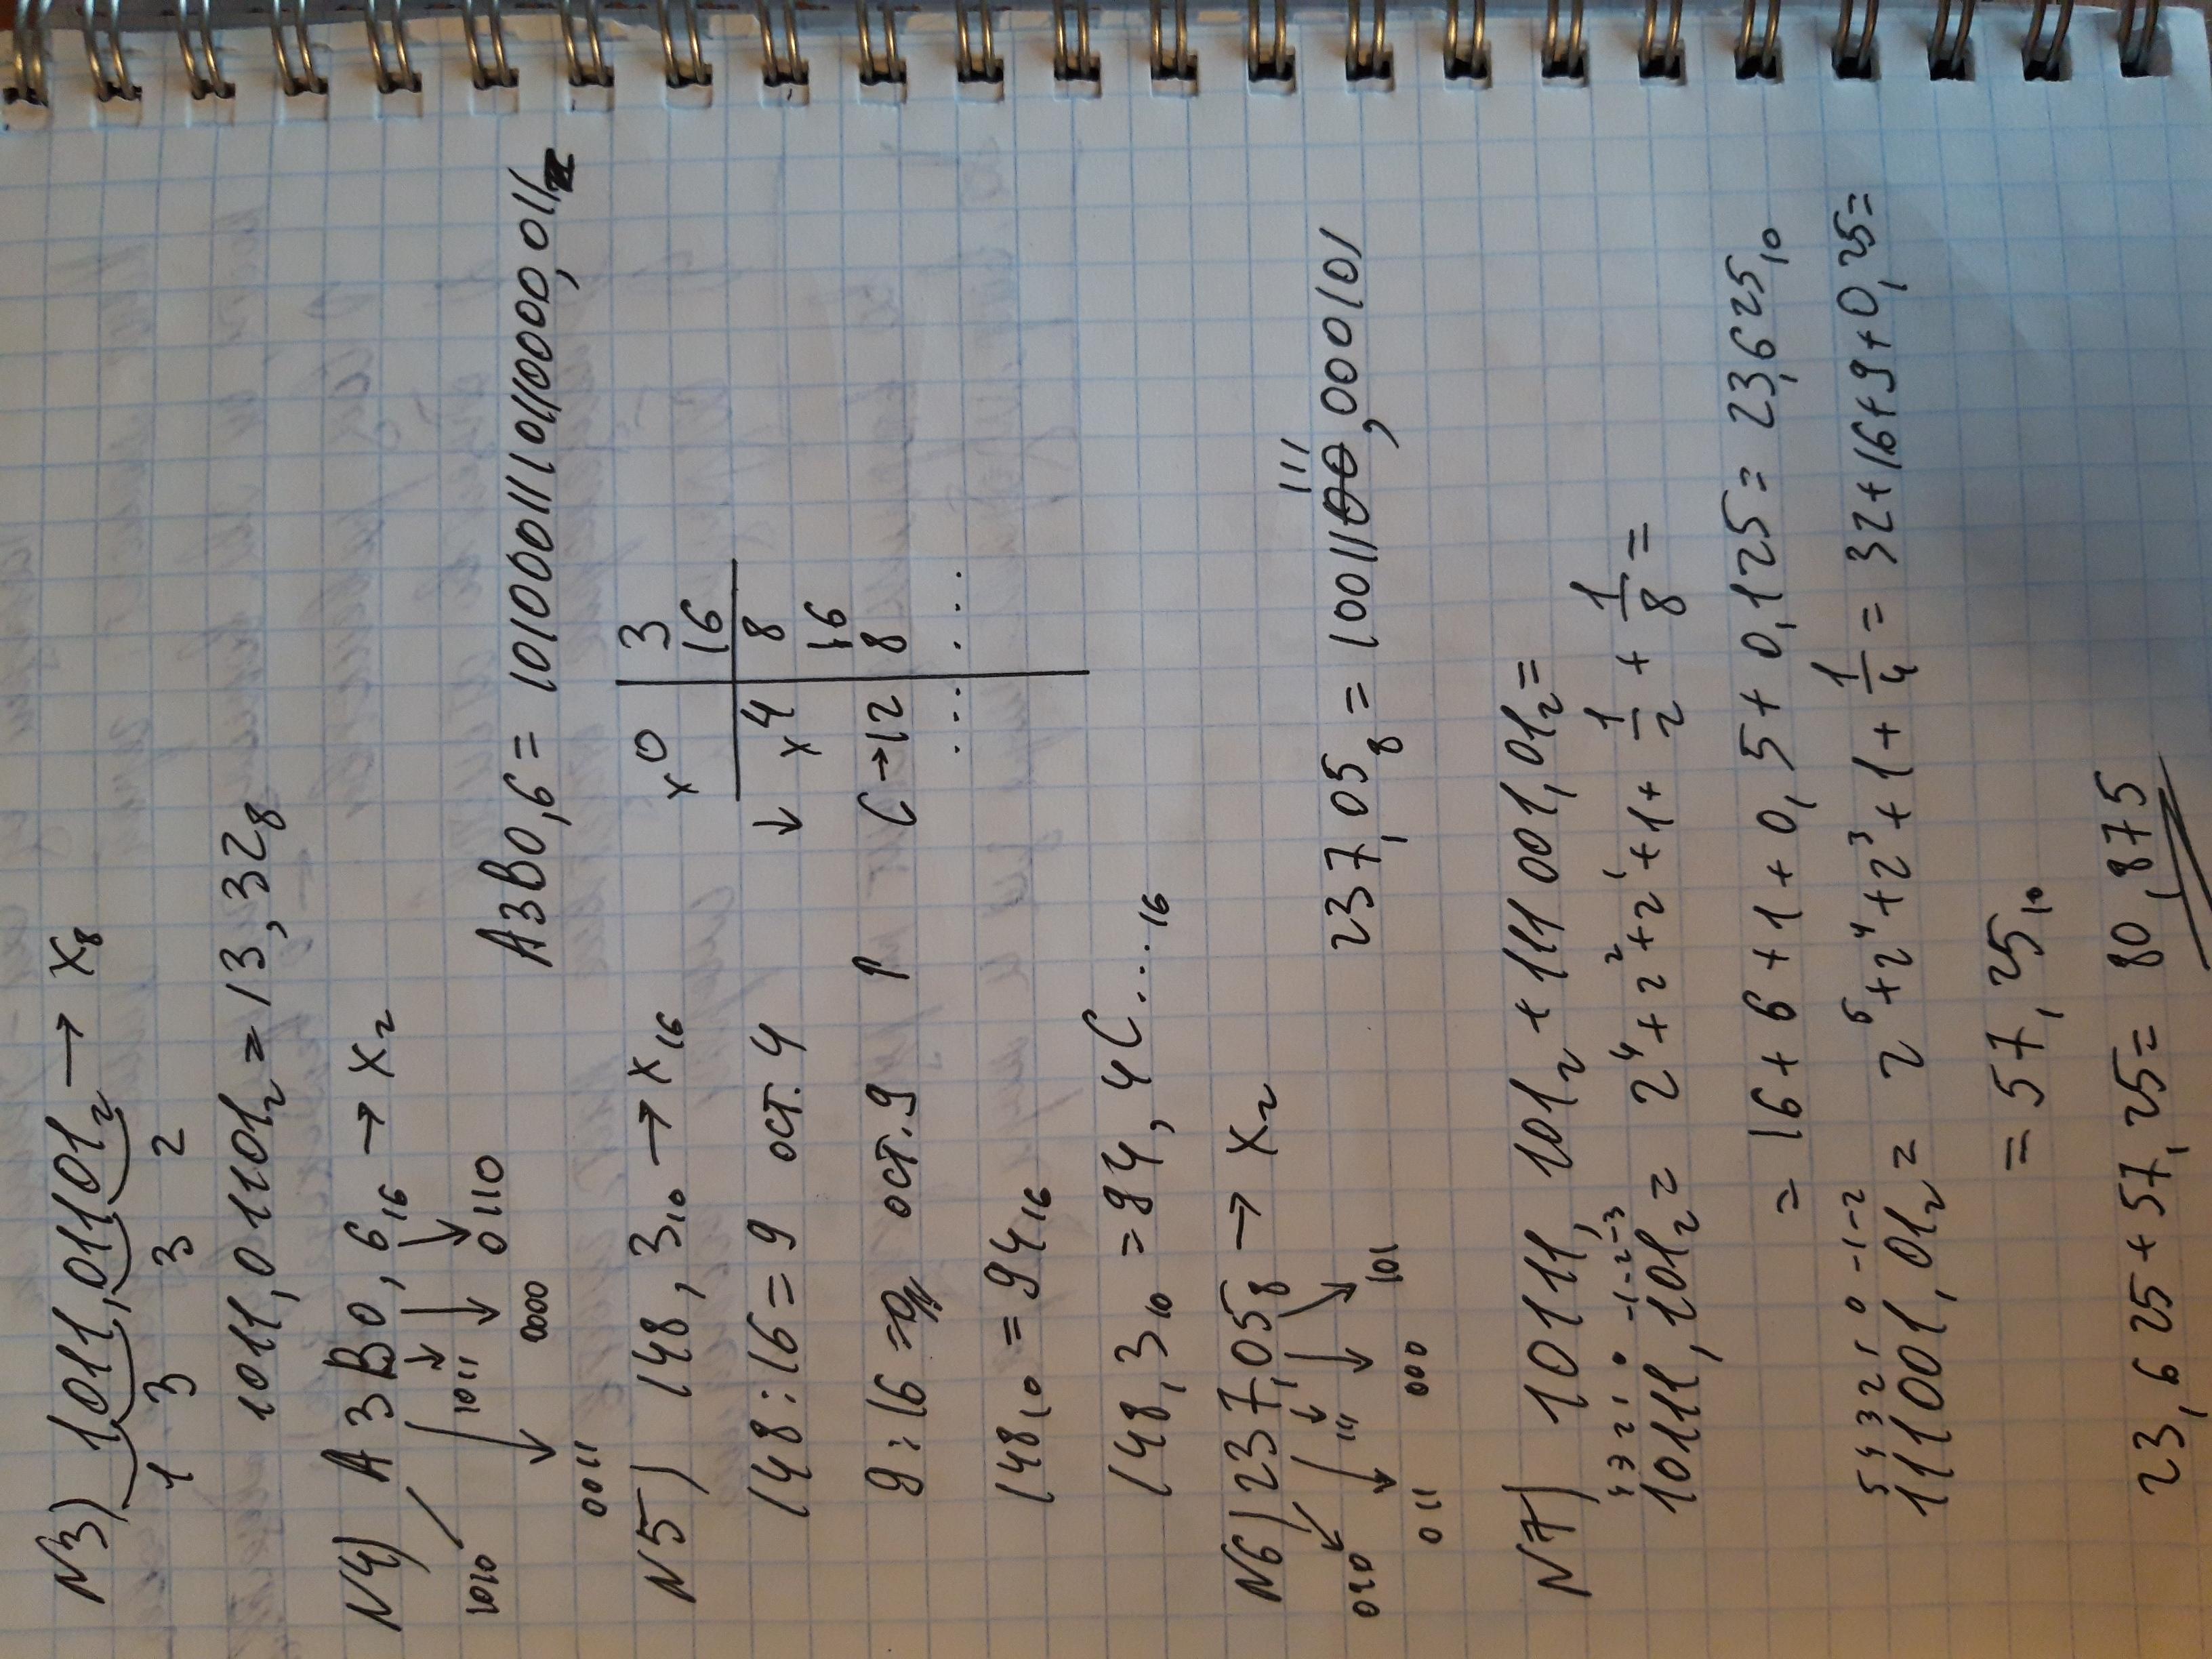 N3) 1011,01101₂ → x₈
1 3 3 2
1011,01101₂ = 13,32₈
N4) A3B0,6₁₆ → x₂
1010 0011 1011 0000 0110
A3B0,6 = 1010001110110000,011₂
N5) 148,3₁₀ → x₁₆
148:16 = 9 ост. 4
9:16 = 0 ост. 9 ↑
148₁₀ = 94₁₆
x 0 | 3
16
↓ x 4 | 8
16
C → 12 | 8
... | ...
148,3₁₀ = 94,4C....₁₆
N6) 237,05₈ → x₂
010 011 111 000 101
237,05₈ = 10011111,000101
N7) 10111,101₂ + 111001,01₂ =
4 3 2 1 0 -1 -2 -3
10111,101₂ = 2⁴+2²+2¹+1+1/2+1/8 =
= 16+6+1+0,5+0,125 = 23,625₁₀
5 4 3 2 1 0 -1 -2
111001,01₂ = 2⁵+2⁴+2³+1+1/4 = 32+16+9+0,25 =
= 57,25₁₀
23,625+57,25 = 80,875